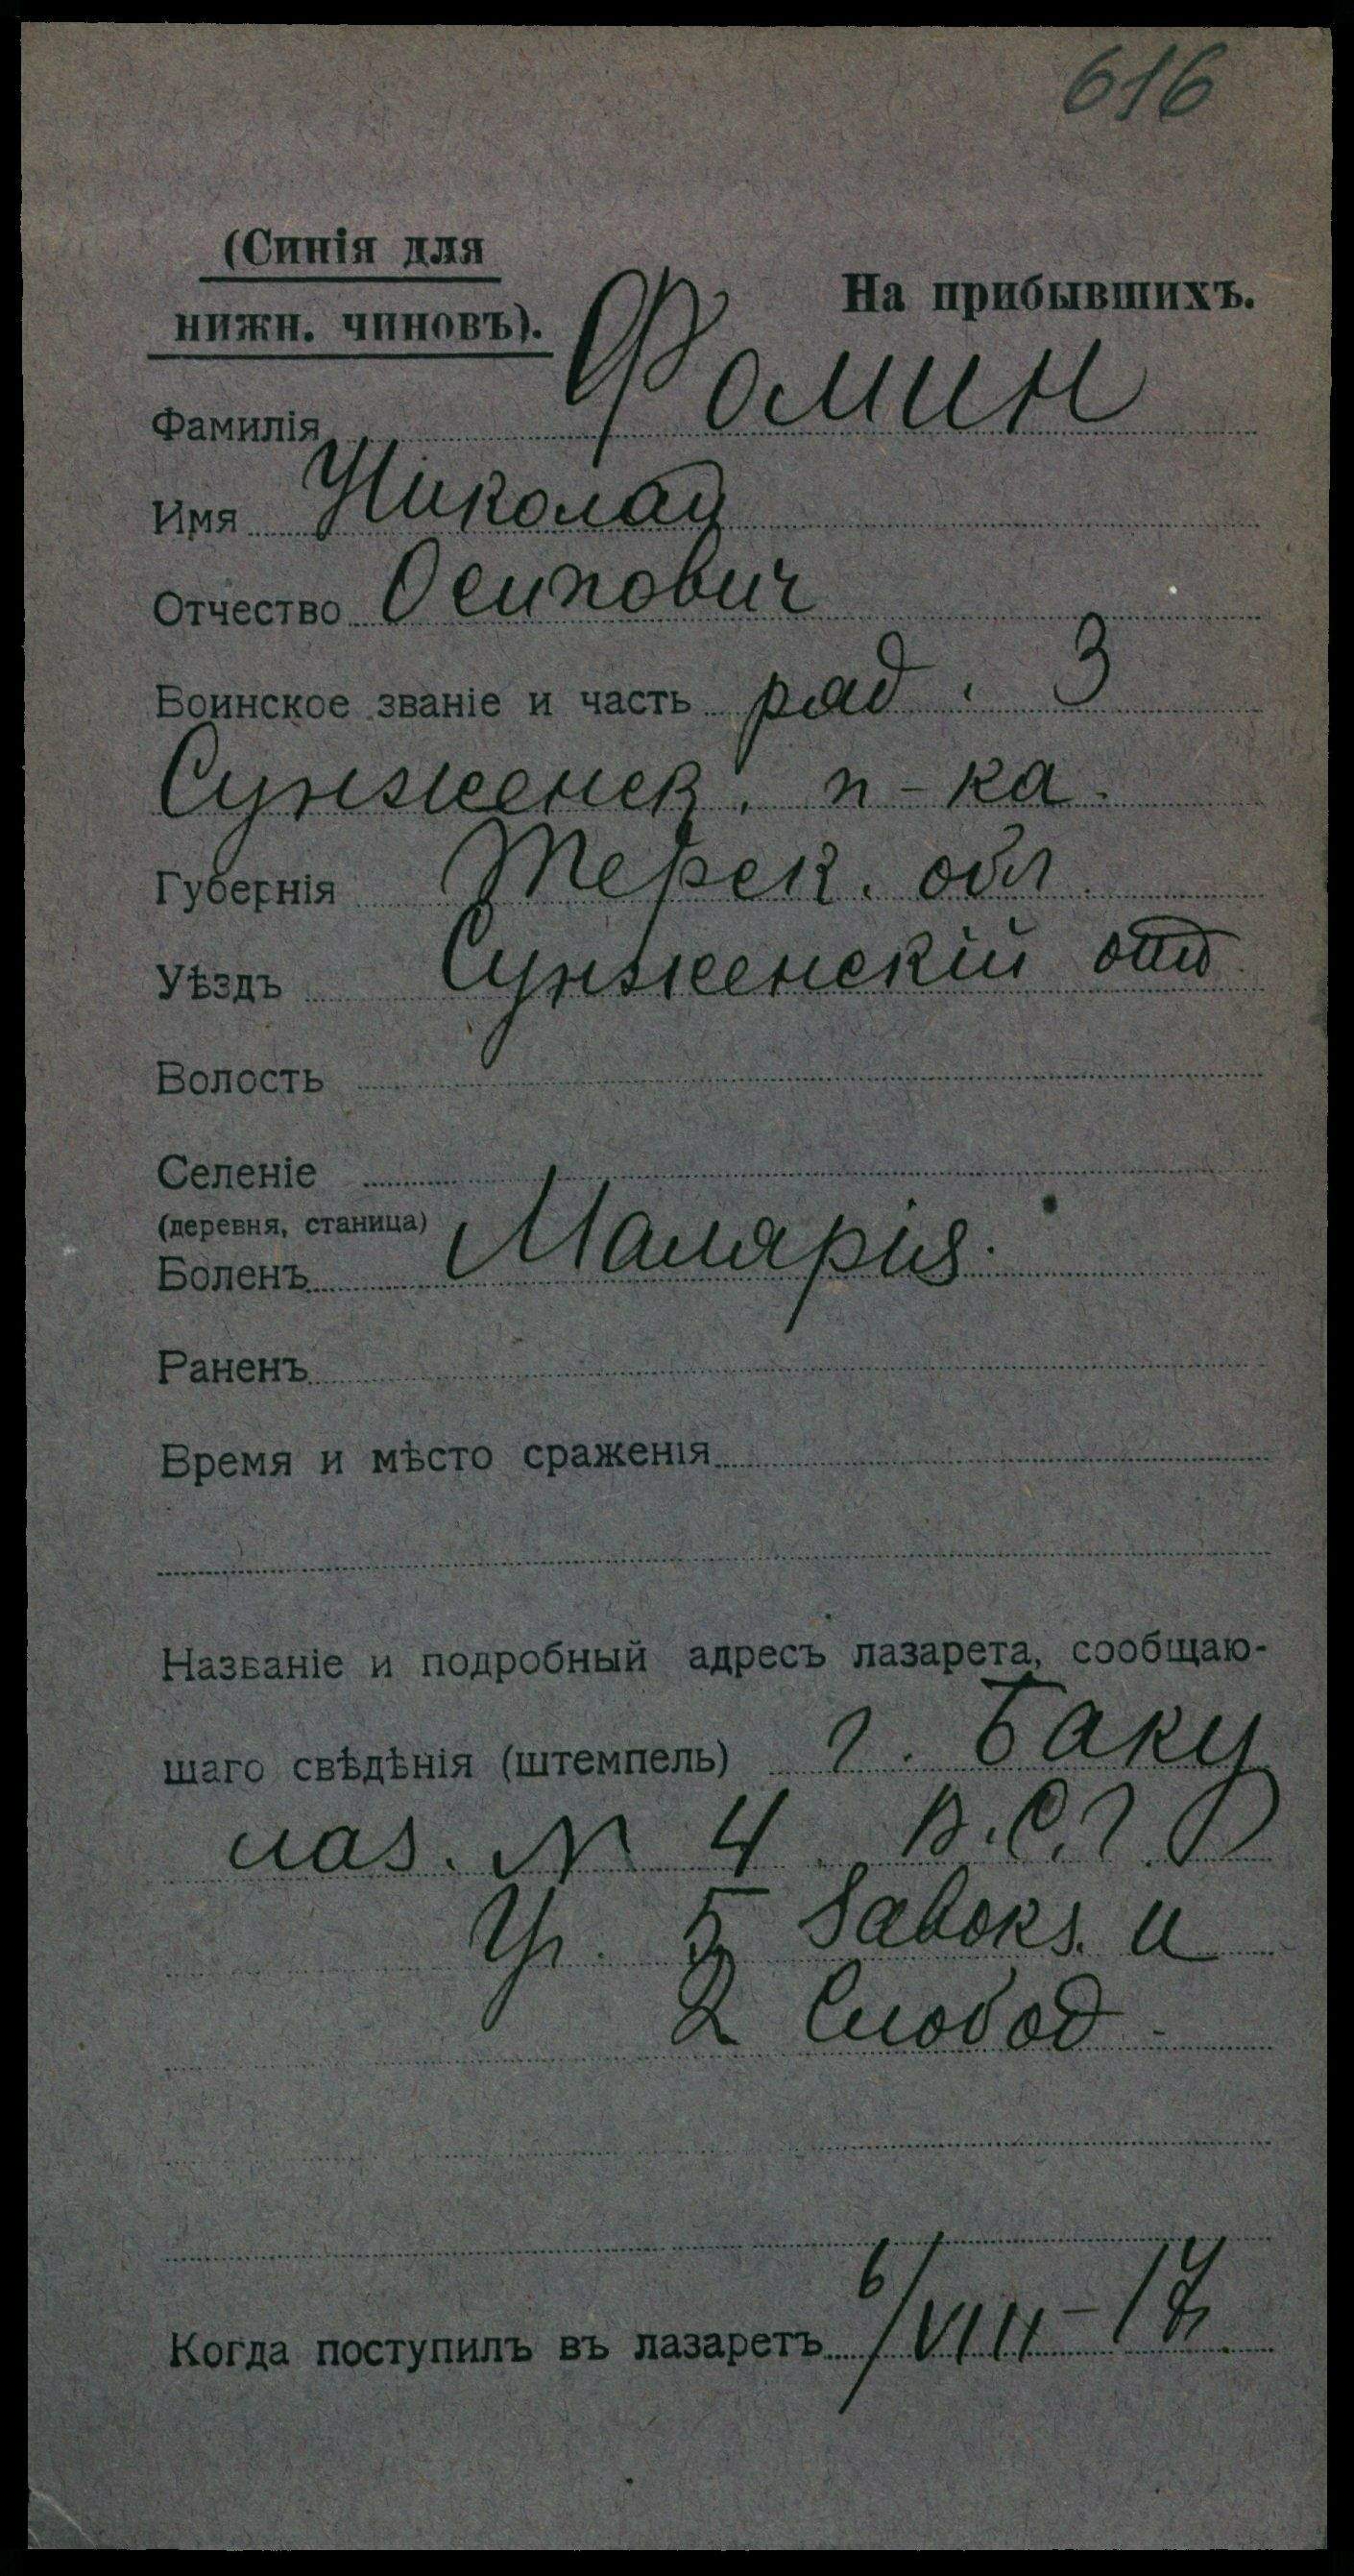 616
(Синія для
нижн. чиновъ).
На прибывшихъ.
Фамилія Фомин
Имя Николай
Отчество Осипович
Воинское званіе и часть ряд. 3
Сунженск. п-ка.
Губернія Терск. обл.
Уѣздъ Сунженскій отд.
Волость
Селеніе
(деревня, станица)
Боленъ Малярія.
Раненъ
Время и мѣсто сраженія
Названіе и подробный адресъ лазарета, сообщаю-
щаго свѣдѣнія (штемпель) г. Баку
лаз. № 4 В.С.Г.
Уг. 5 Завокз. и
2 Слобод.
Когда поступилъ въ лазаретъ 6/VIII-17